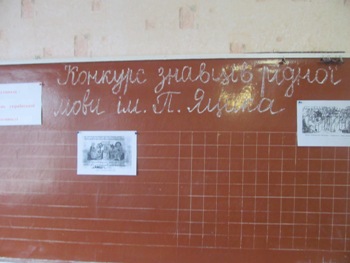 Конкурс знавців рідної
мови ім. П. Яцика